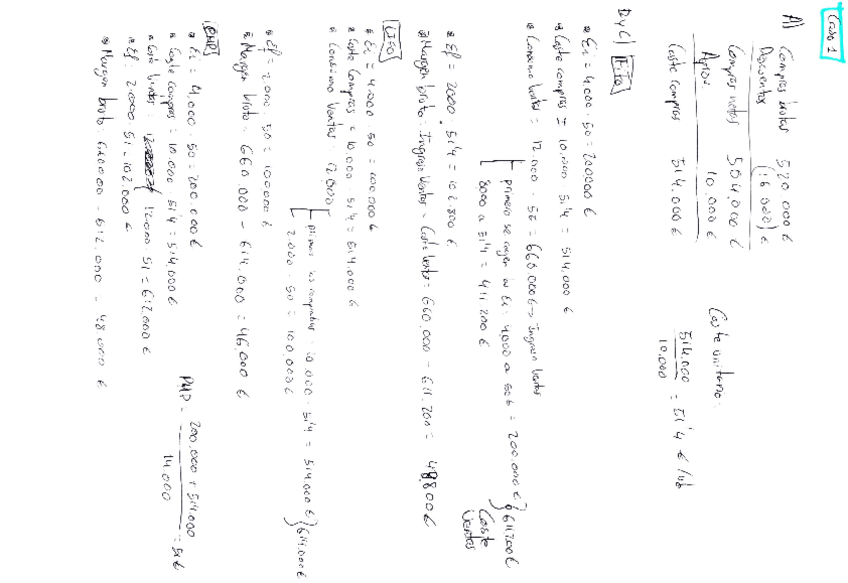 Caso 1
A) Compras brutas 520.000 €
Descuentos (16.000) €
Compras netas 504.000 €
Aprov. 10.000 €
Coste compras 514.000 €
Coste unitario:
514.000
10.000
= 51'4 €/ud
B y C) Fifo
* Ei = 4.000 · 50 = 200000 €
* Coste compras = 10.000 · 51'4 = 514.000 €
* Consumo Ventas = 12.000 · 50 = 660.000 € → Ingreso Ventas
primero se cogen las Ei: 4000 a 50 € = 200.000 €
8000 a 51'4 = 411.200 €
611.200 €
Coste Ventas
* Ef = 2000 · 51'4 = 102.800 €
* Margen bruto = Ingreso Ventas - Coste Ventas = 660.000 - 611.200 = 48.800 €
Lifo
* Ei = 4.000 · 50 = 200.000 €
* Coste Compras = 10.000 · 51'4 = 514.000 €
* Consumo Ventas = 12.000
primero las compradas = 10.000 · 51'4 = 514.000 €
2.000 · 50 = 100.000 €
614.000 €
* Ef = 2.000 · 50 = 100.000 €
* Margen bruto = 660.000 - 614.000 = 46.000 €
PMP
* Ei = 4.000 · 50 = 200.000 €
* Coste compras = 10.000 · 51'4 = 514.000 €
* Coste Ventas = 12.000 · 51 = 612.000 €
PMP = 200.000 + 514.000
14.000
= 51 €
* Ef = 2.000 · 51 = 102.000 €
* Margen bruto: 660.000 - 612.000 = 48.000 €